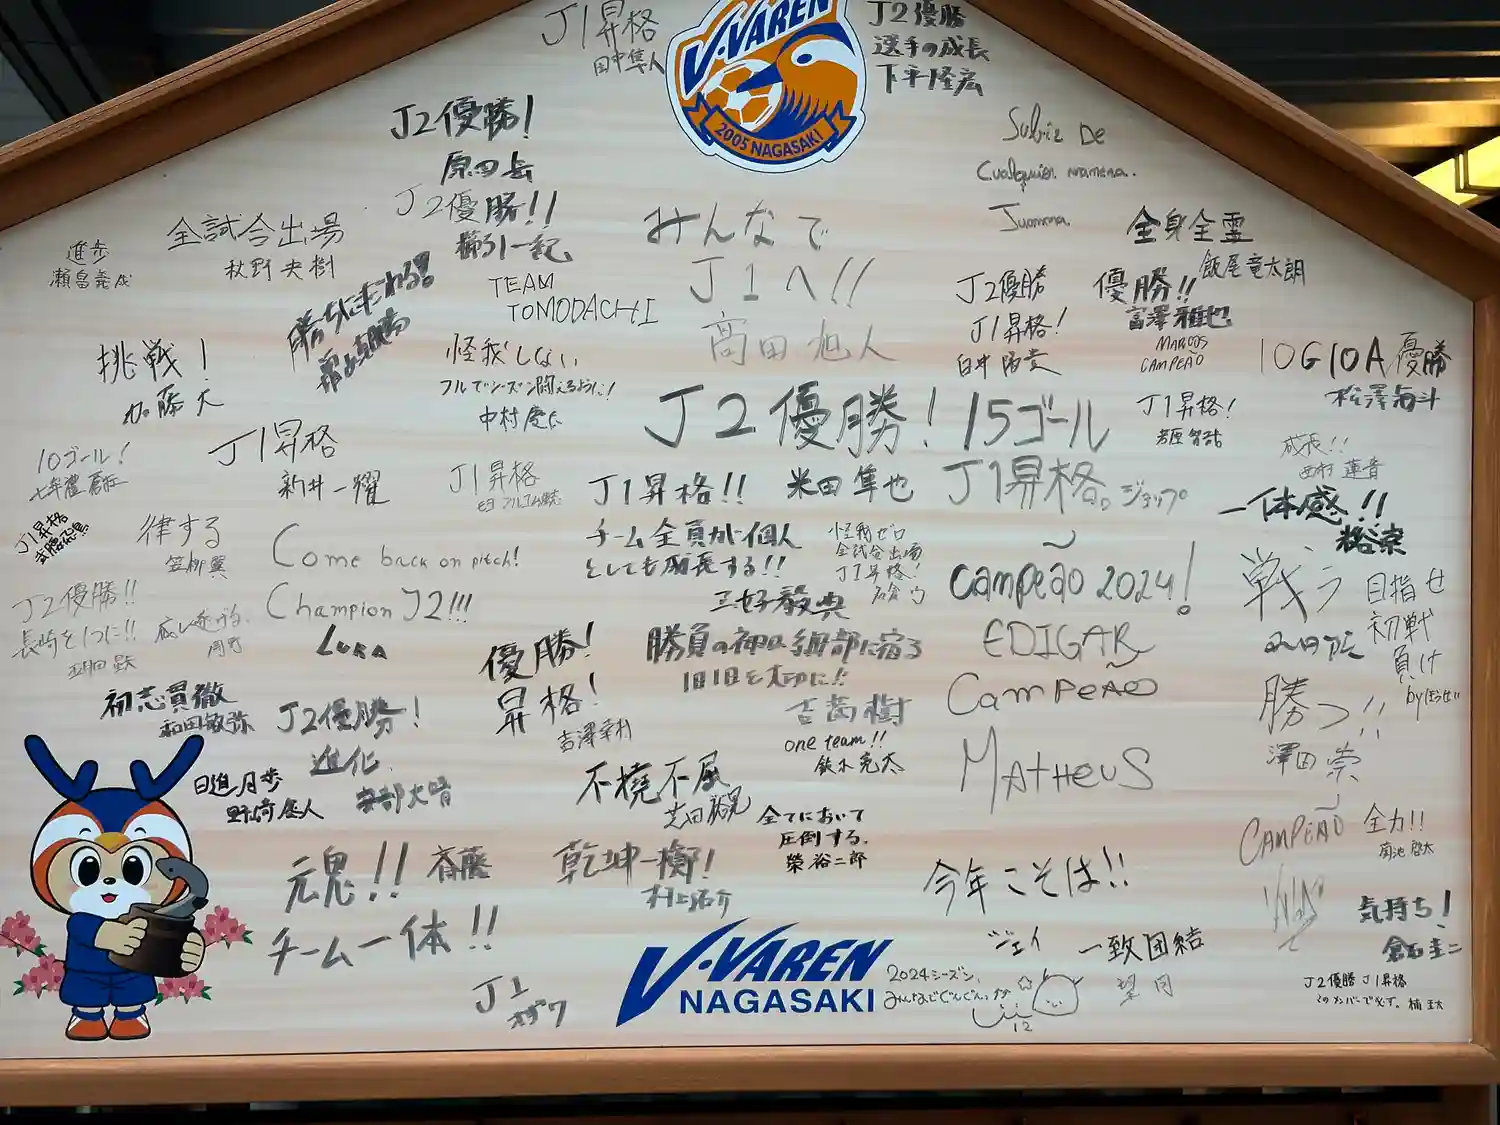 J1昇格
田中隼人
V·VAREN
2005 NAGASAKI
J2優勝
選手の成長
下平隆宏
J2優勝!
原田岳
J2優勝!!
櫛引一紀
TEAM
TOMODACHI
全試合出場
秋野央樹
進歩
瀬畠義成
挑戦!
加藤大
勝ちにこだわる!!
怪我しない
フルでシーズン闘えるように!
中村慶太
みんなで
J1へ!!
高田旭人
Subir De
Cualquier manera.
Juanma.
全身全霊
飯尾竜太朗
J2優勝
J1昇格!
白井陽貴
優勝!!
富澤雅也
MARCOS
CAMPEÃO
10G10A優勝
松澤海斗
J2優勝!15ゴール
J1昇格!
若原智哉
成長!!
西村蓮音
10ゴール!
J1昇格
新井一耀
J1昇格
J1昇格!!
米田隼也
J1昇格。ジョップ
一体感!!
裕宗
J1昇格
律する
笠柳翼
Come back on pitch!
Champion J2!!!
LUKA
チーム全員が個人
としても成長する!!
三好毅典
怪我ゼロ
全試合出場
J1昇格!
Campeão 2024!
EDIGAR
戦う
目指せ
初戦
負け
J2優勝!!
長崎を1つに!!
初志貫徹
和田敏弥
J2優勝!
進化
安部大晴
優勝!
昇格!
吉澤幸村
勝負の神は細部に宿る
1日1日を大切に!!
one team!!
鈴木亮太
Campeão
MATHEUS
勝つ!!
澤田崇
日進月歩
野崎屋人
不撓不屈
全てにおいて
圧倒する。
榮裕二郎
CAMPEÃO
全力!!
菊池啓太
元鬼!!
斉藤
チーム一体!!
乾坤一擲!
村上佑介
今年こそは!!
ジェイ
一致団結
望月
気持ち!
倉石圭二
J1
オザワ
V·VAREN
NAGASAKI
2024シーズン、
12
J2優勝 J1昇格
このメンバーで必ず。楠圭太